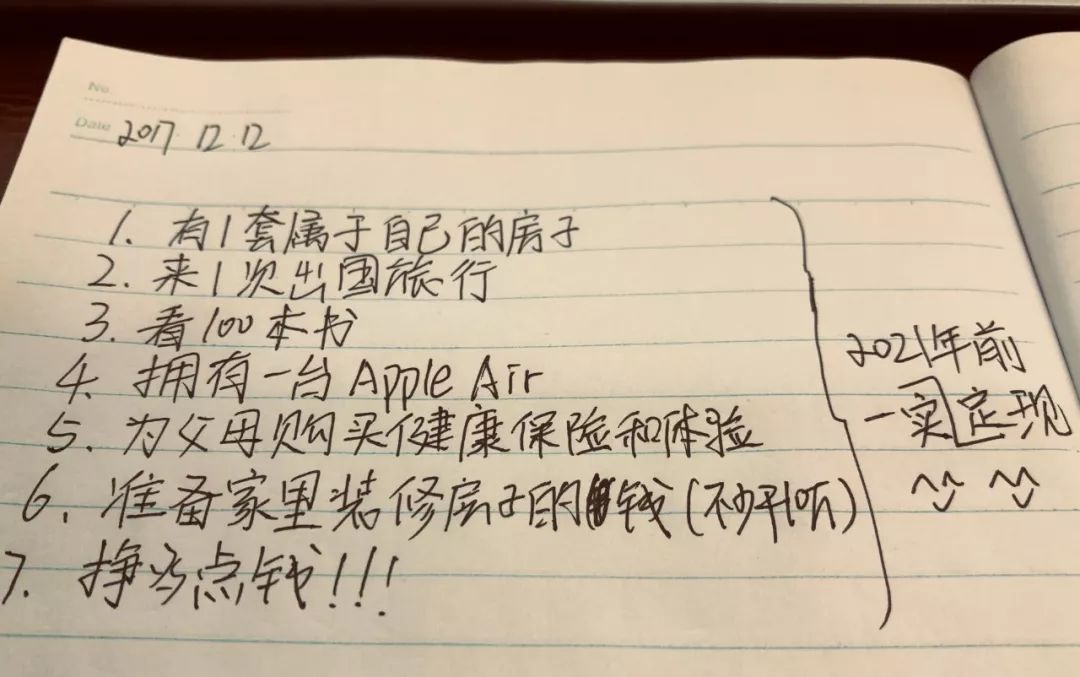 No.
Date 2017.12.12
1. 有1套属于自己的房子
2. 来1次出国旅行
3. 看100本书
4. 拥有一台Apple Air
5. 为父母购买健康保险和体验
6. 准备家里装修房子的钱(不少于10万)
7. 挣多点钱!!!
2021年前
一实定现
^^ ^^